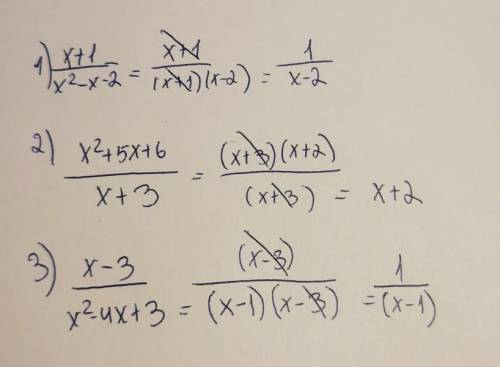 1) \frac{x+1}{x²-x-2} = \frac{x+1}{(x+1)(x-2)} = \frac{1}{x-2}
2) \frac{x²+5x+6}{x+3} = \frac{(x+3)(x+2)}{(x+3)} = x+2
3) \frac{x-3}{x²-4x+3} = \frac{(x-3)}{(x-1)(x-3)} = \frac{1}{(x-1)}